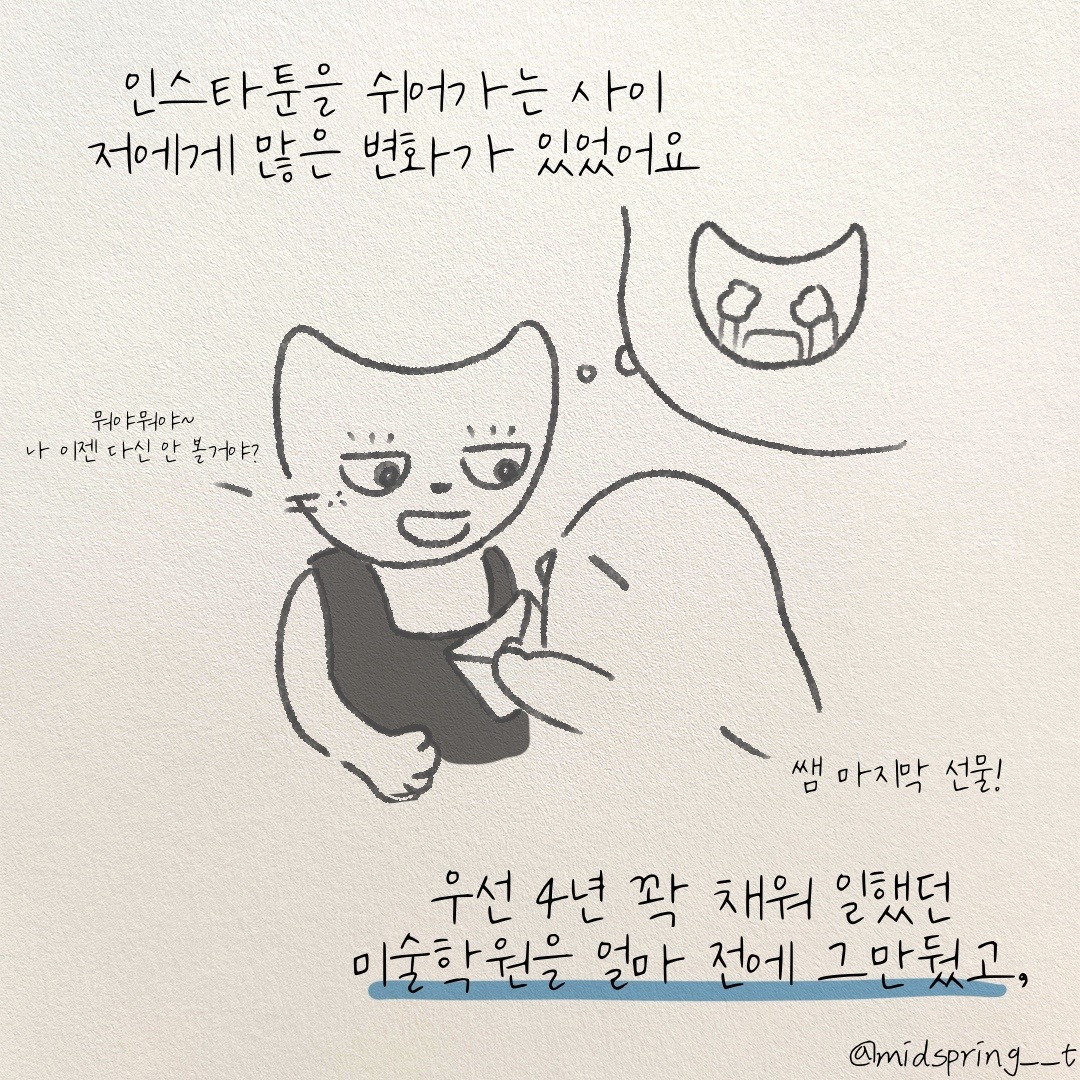 인스타툰을 쉬어가는 사이
저에게 많은 변화가 있었어요
뭐야뭐야~
나 이젠 다신 안 볼거야?
쌤 마지막 선물!
우선 4년 꽉 채워 일했던
미술학원을 얼마 전에 그만뒀고,
@midspring__t